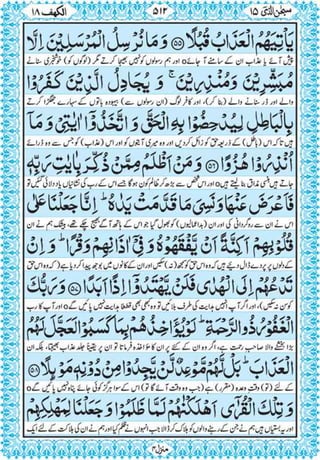 سبحن الذی ١٥ ۵۱۲ الکهف ١٨
يَأْتِيَهُمُ الْعَذَابُ قُبُلًا ﴿٥٥﴾ وَمَا نُرْسِلُ الْمُرْسَلِيْنَ اِلَّا
پیش آئے یا عذاب ان کے سامنے آ جائے اور ہم رسولوں کو نہیں بھیجا کرتے مگر (لوگوں کو) خوشخبری سنانے
مُبَشِّرِيْنَ وَمُنْذِرِيْنَ ۚ وَيُجَادِلُ الَّذِيْنَ كَفَرُوْا
والے اور ڈر سنانے والے (بنا کر)، اور کافر لوگ (ان رسولوں سے) بیہودہ باتوں کے سہارے جھگڑا کرتے
بِالْبَاطِلِ لِيُدْحِضُوْا بِهِ الْحَقَّ وَاتَّخَذُوْٓا اٰيٰتِيْ وَمَآ
ہیں تاکہ اس (باطل) کے ذریعہ حق کو زائل کر دیں اور وہ میری آیتوں کو اور اس (عذاب) کو جس سے وہ ڈرائے
اُنْذِرُوْا هُزُوًا ﴿٥٦﴾ وَمَنْ اَظْلَمُ مِمَّنْ ذُكِّرَ بِاٰيٰتِ رَبِّهٖ
جاتے ہیں ہنسی مذاق بنا لیتے ہیں اور اس شخص سے بڑھ کر ظالم کون ہوگا جسے اس کے رب کی نشانیاں یاد دلائی گئیں تو
فَاَعْرَضَ عَنْهَا وَنَسِيَ مَا قَدَّمَتْ يَدٰهُ ۭ اِنَّا جَعَلْنَا عَلٰى
اس نے ان سے روگردانی کی اور ان (بداعمالیوں) کو بھول گیا جو اس کے ہاتھ آگے بھیج چکے تھے، بیشک ہم نے ان
قُلُوْبِهِمْ اَكِنَّةً اَنْ يَّفْقَهُوْهُ وَفِيْٓ اٰذَانِهِمْ وَقْرًا ۭ وَاِنْ
کے دلوں پر پردے ڈال دیئے ہیں کہ وہ اس حق کو سمجھ (نہ) سکیں اور ان کے کانوں میں بوجھ پیدا کر دیا ہے
تَدْعُهُمْ اِلَى الْهُدٰى فَلَنْ يَّهْتَدُوْٓا اِذًا اَبَدًا ﴿٥٧﴾ وَرَبُّكَ
کو سن نہ سکیں)، اور اگر آپ انہیں ہدایت کی طرف بلائیں تو وہ کبھی بھی قطعاً ہدایت نہیں پائیں گے اور آپ کا رب
الْغَفُوْرُ ذُو الرَّحْمَةِ ۭ لَوْ يُؤَاخِذُهُمْ بِمَا كَسَبُوْا لَعَجَّلَ لَهُمُ
بڑا بخشنے والا صاحبِ رحمت ہے، اگر وہ ان کے کئے پر ان کا مؤاخذہ فرماتا تو ان پر یقیناً جلد عذاب بھیجتا، بلکہ ان
الْعَذَابَ ۭ بَلْ لَّهُمْ مَّوْعِدٌ لَّنْ يَّجِدُوْا مِنْ دُوْنِهٖ مَوْئِلًا ﴿٥٨﴾
کے لئے (تو) وقتِ وعدہ (مقرر) ہے (جب وہ وقت آئے گا تو) اس کے سوا ہرگز کوئی جائے پناہ نہیں پائیں گے
وَتِلْكَ الْقُرٰٓى اَهْلَكْنٰهُمْ لَمَّا ظَلَمُوْا وَجَعَلْنَا لِمَهْلِكِهِمْ
اور یہ بستیاں ہیں ہم نے جن کے رہنے والوں کو ہلاک کر ڈالا جب انہوں نے ظلم کیا اور ہم نے ان کی ہلاکت کے لئے ایک
منزل ۴